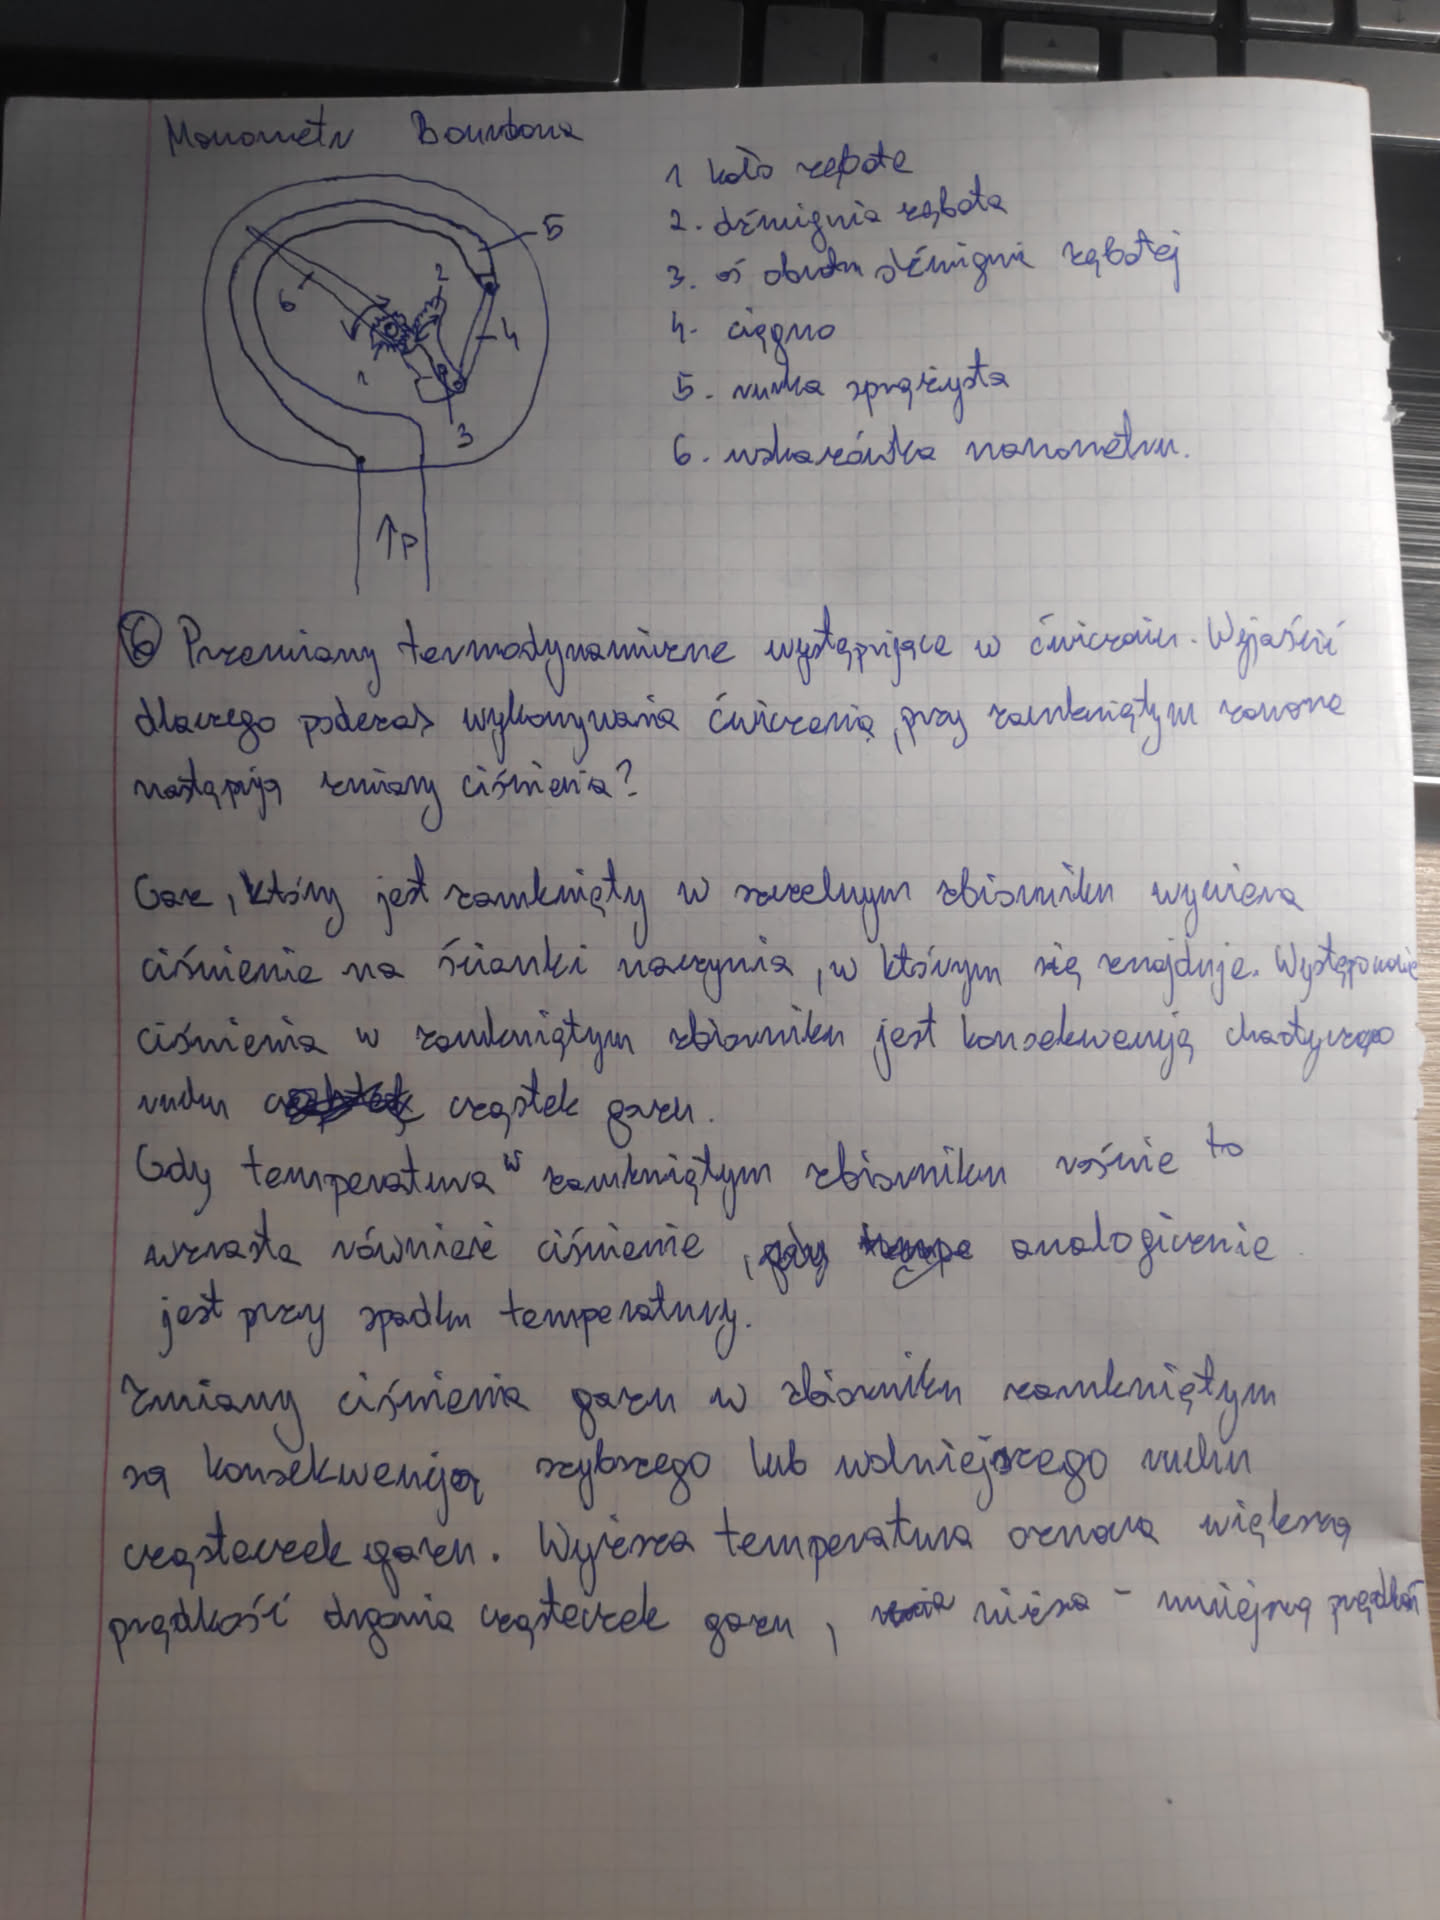 Manometr Bourdona
1 koło zębate
2. dźwignia zębata
3. oś obrotu dźwigni zębatej
4. cięgno
5. rurka sprężysta
6. wskazówka manometru.
5
2
6
4
1
3
↑p
⑥ Przemiany termodynamiczne występujące w ćwiczeniu. Wyjaśnić
dlaczego podczas wykonywania ćwiczenia, przy zamkniętym zaworze
następują zmiany ciśnienia?
Gaz, który jest zamknięty w szczelnym zbiorniku wywiera
ciśnienie na ścianki naczynia, w którym się znajduje. Występowanie
ciśnienia w zamkniętym zbiorniku jest konsekwencją chaotycznego
ruchu cząstek gazu.
Gdy temperatura w zamkniętym zbiorniku rośnie to
wzrasta również ciśnienie, analogicznie
jest przy spadku temperatury.
Zmiany ciśnienia gazu w zbiorniku zamkniętym
są konsekwencją szybszego lub wolniejszego ruchu
cząsteczek gazu. Wyższa temperatura oznacza większą
prędkość drgania cząsteczek gazu, niższa - mniejszą prędkość